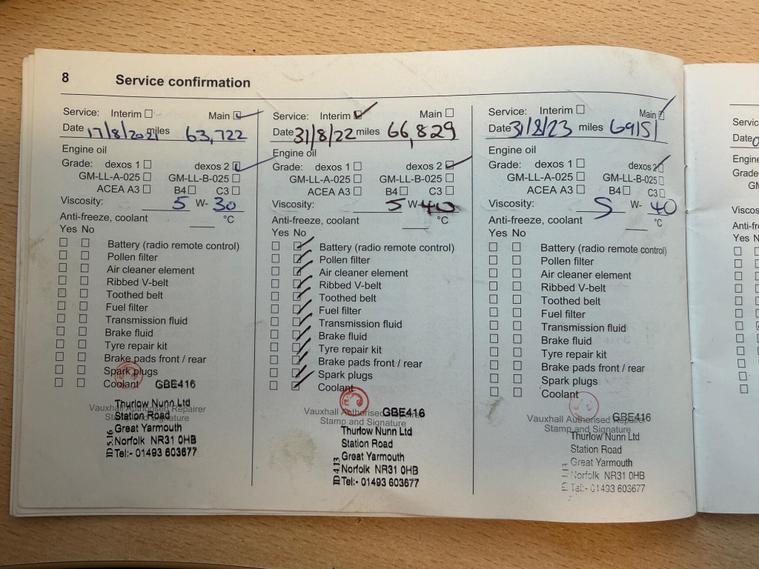 8 Service confirmation
Service: Interim Main
Date 17/8/2021 miles 63,722
Engine oil
Grade: dexos 1 dexos 2
GM-LL-A-025 GM-LL-B-025
ACEA A3 B4 C3
Viscosity: 5 W- 30
Anti-freeze, coolant °C
Yes No
Battery (radio remote control)
Pollen filter
Air cleaner element
Ribbed V-belt
Toothed belt
Fuel filter
Transmission fluid
Brake fluid
Tyre repair kit
Brake pads front / rear
Spark plugs
Coolant GBE416
Vauxhall Authorised Repairer
Stamp and Signature
Thurlow Nunn Ltd
Station Road
Great Yarmouth
Norfolk NR31 0HB
Tel:- 01493 603677
Service: Interim Main
Date 31/8/22 miles 66,829
Engine oil
Grade: dexos 1 dexos 2
GM-LL-A-025 GM-LL-B-025
ACEA A3 B4 C3
Viscosity: 5 W- 40
Anti-freeze, coolant °C
Yes No
Battery (radio remote control)
Pollen filter
Air cleaner element
Ribbed V-belt
Toothed belt
Fuel filter
Transmission fluid
Brake fluid
Tyre repair kit
Brake pads front / rear
Spark plugs
Coolant
Vauxhall Authorised GBE416
Stamp and Signature
Thurlow Nunn Ltd
Station Road
Great Yarmouth
Norfolk NR31 0HB
Tel:- 01493 603677
Service: Interim Main
Date 31/8/23 miles 69151
Engine oil
Grade: dexos 1 dexos 2
GM-LL-A-025 GM-LL-B-025
ACEA A3 B4 C3
Viscosity: 5 W- 40
Anti-freeze, coolant °C
Yes No
Battery (radio remote control)
Pollen filter
Air cleaner element
Ribbed V-belt
Toothed belt
Fuel filter
Transmission fluid
Brake fluid
Tyre repair kit
Brake pads front / rear
Spark plugs
Coolant
GBE416
Vauxhall Authorised Repairer
Stamp and Signature
Thurlow Nunn Ltd
Station Road
Great Yarmouth
Norfolk NR31 0HB
Tel:- 01493 603677